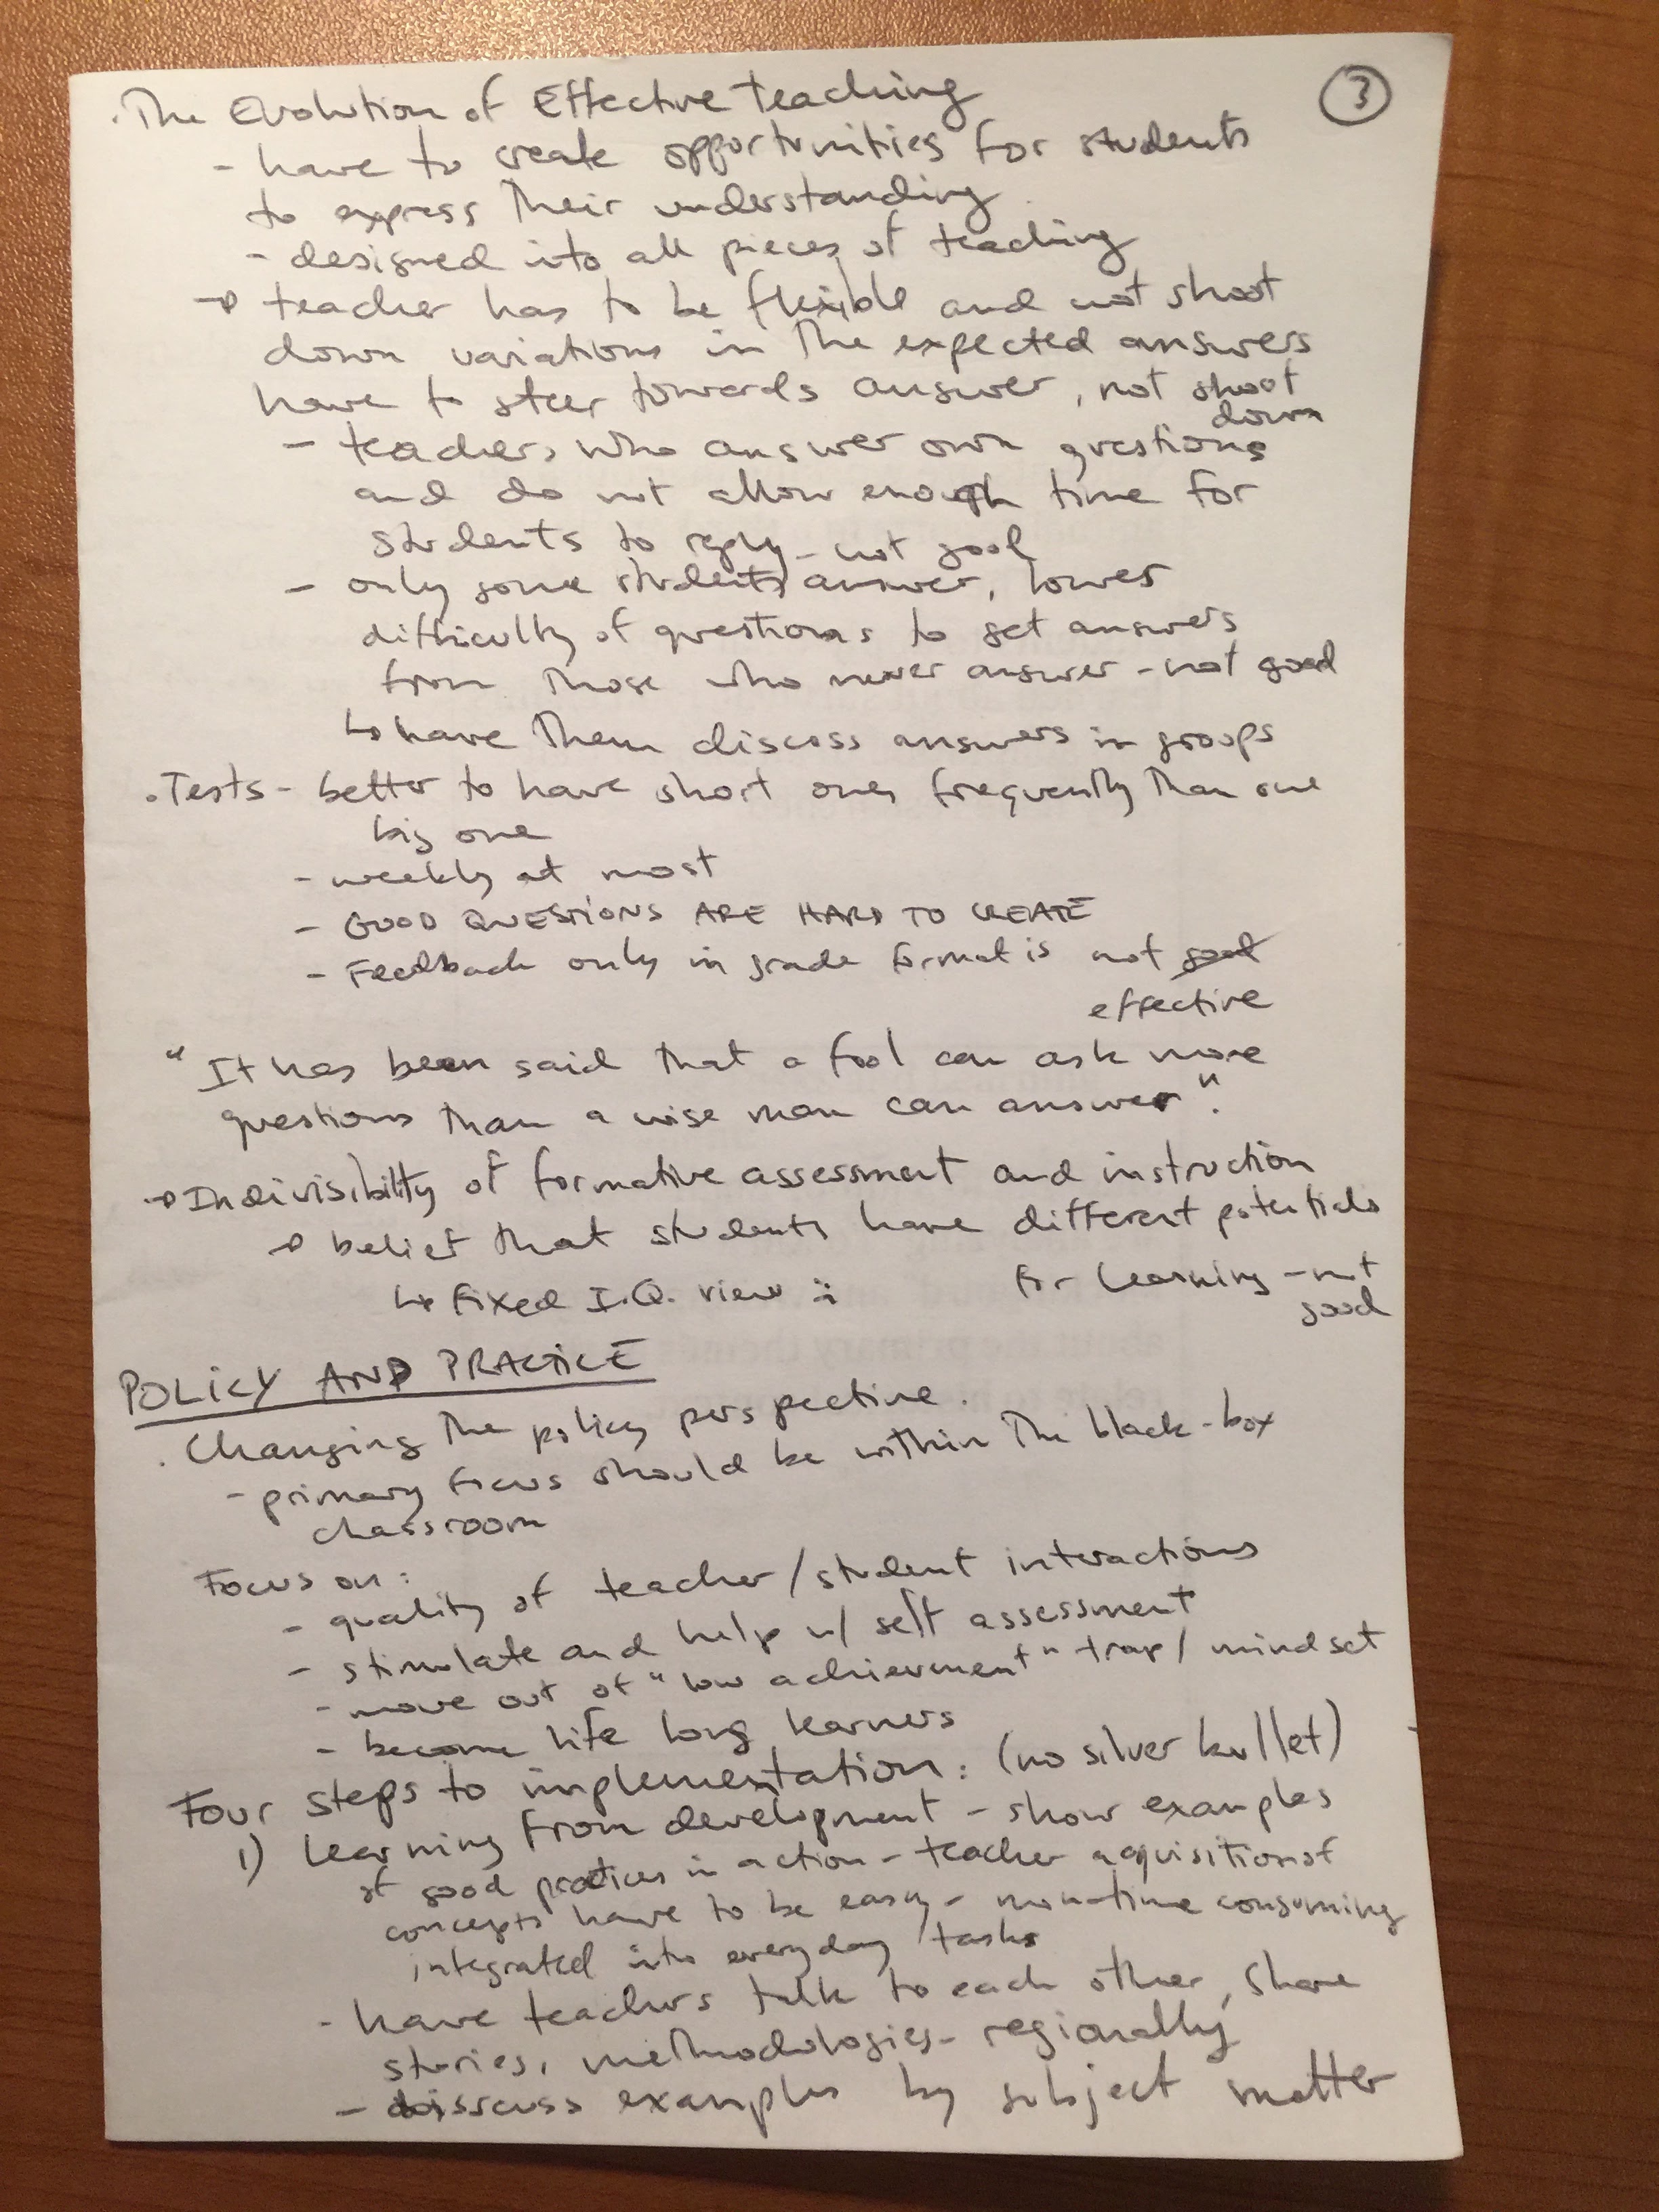 ③
. The Evolution of Effective teaching
- have to create opportunities for students
to express their understanding.
- designed into all pieces of teaching
→ teacher has to be flexible and not shoot
down variations in the expected answers
have to steer towards answer, not shoot
down
- teachers who answer own questions
and do not allow enough time for
students to reply - not good
- only some students answer, lower
difficulty of questions to get answers
from those who never answer - not good
↳ have them discuss answers in groups
. Tests - better to have short ones frequently than one
big one
- weekly at most
- GOOD QUESTIONS ARE HARD TO CREATE
- Feedback only in grade format is not good
effective
"It has been said that a fool can ask more
questions than a wise man can answer".
→ Indivisibility of formative assessment and instruction
→ belief that students have different potentials
for learning - not
good
↳ Fixed I.Q. view
POLICY AND PRACTICE
. Changing the policy perspective.
- primary focus should be within the black-box
classroom
Focus on:
- quality of teacher/student interactions
- stimulate and help w/ self assessment
- move out of "low achievement" trap/mindset
- become life long learners
Four steps to implementation: (no silver bullet)
1) Learning from development - show examples
of good practices in action - teacher aquisition of
concepts have to be easy - non-time consuming
integrated into everyday tasks
- have teachers talk to each other, share
stories, methodologies - regionally
- disscuss examples by subject matter